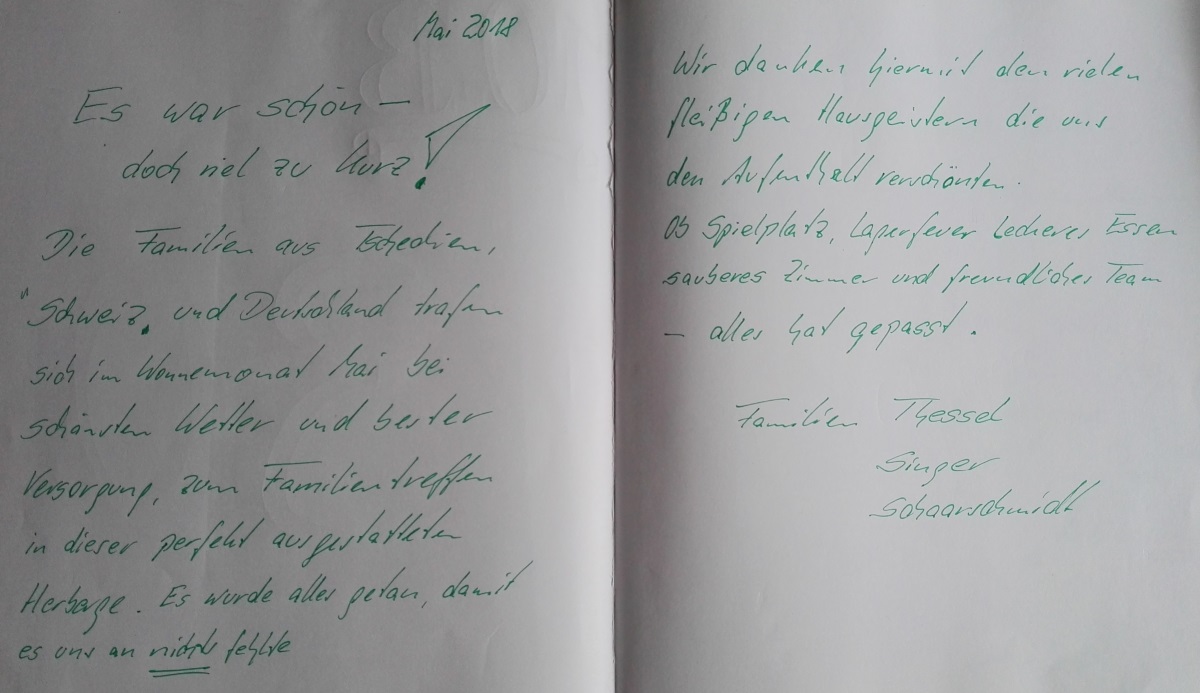 Mai 2018
Es war schön –
doch viel zu kurz!
Die Familien aus Tschechien,
Schweiz, und Deutschland trafen
sich im Wonnemonat Mai bei
schönsten Wetter und bester
Versorgung, zum Familientreffen
in dieser perfekt ausgestatteten
Herberge. Es wurde alles getan, damit
es uns an nichts fehlte
Wir danken hiermit den vielen
fleißigen Hausgeistern die uns
den Aufenthalt verschönten.
Ob Spielplatz, Lagerfeuer leckeres Essen
sauberes Zimmer und freundliches Team
– alles hat gepasst.
Familien Thessel
Singer
Schaarschmidt